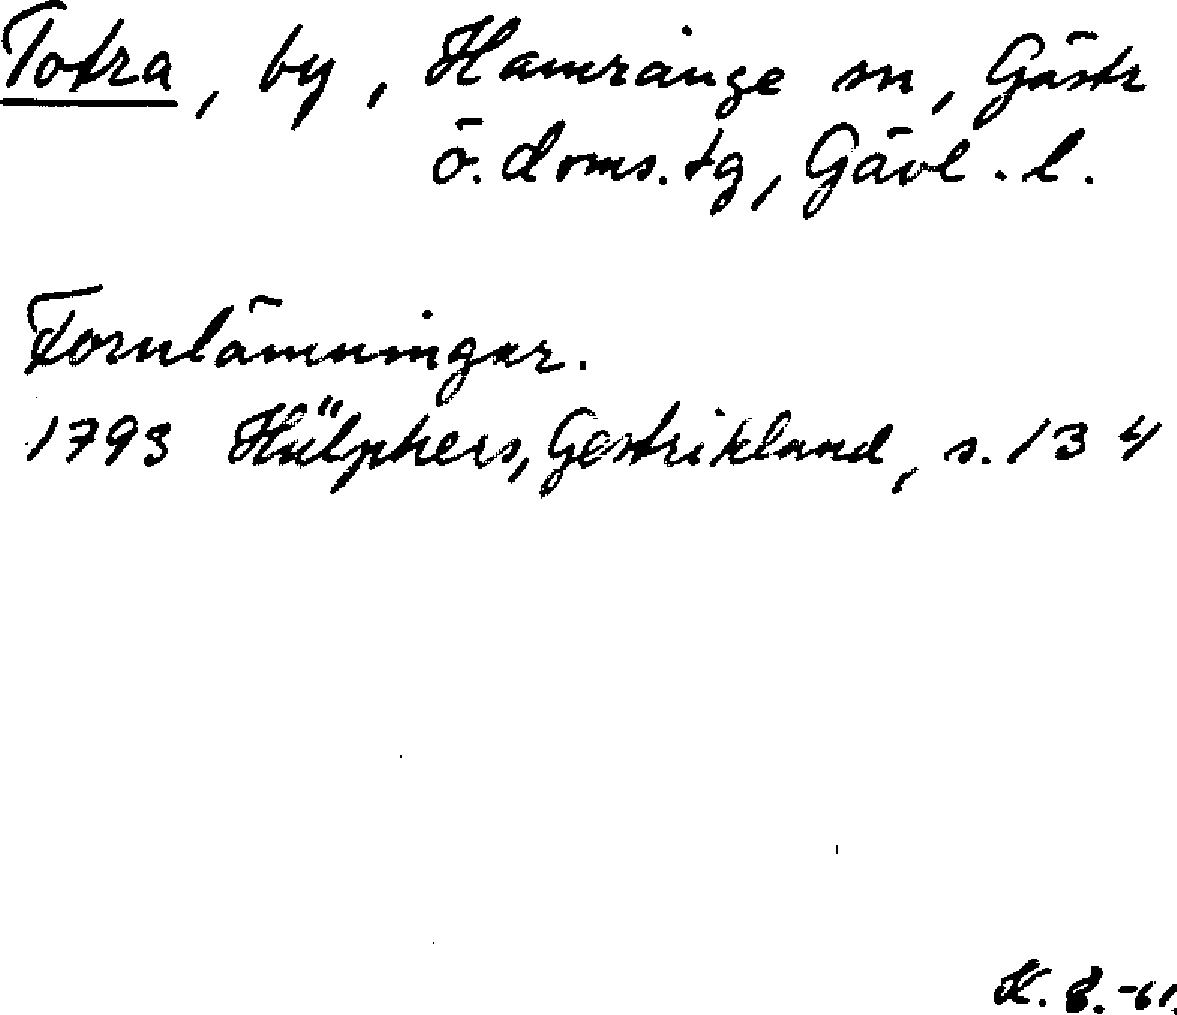 Totra, by, Hamrånge sn, Gästr
ö. doms. tg, Gävl. l.
Fornlämningar.
1793 Hülphers, Gestrikland, s. 134
K. 8. -61.